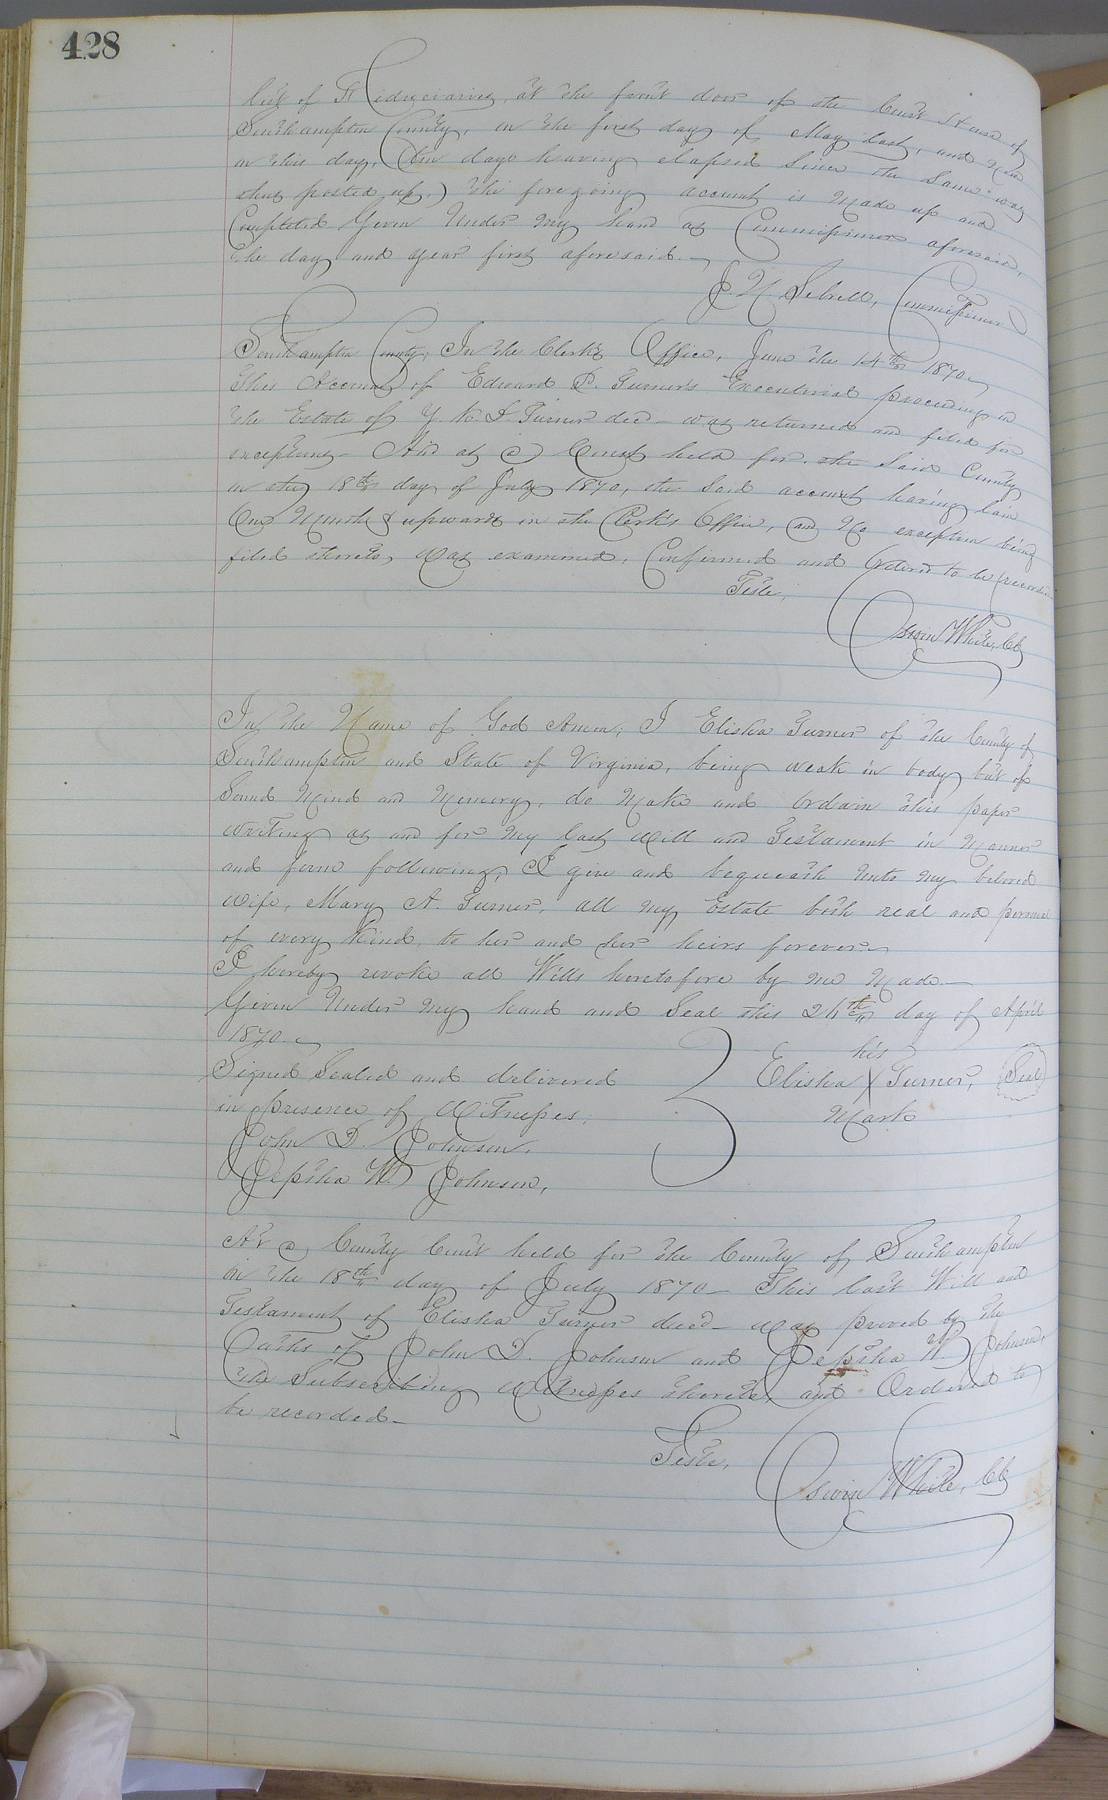 428
list of Fiduciaries, at the front door of the Court House of
Southampton County, on the first day of May last, and now
on this day, (ten days having elapsed since the same was
thus posted up,) the foregoing account is made up and
Completed Given under my hand as Commissioner aforesaid,
the day and year first aforesaid.
J. N. Sebrell, Commissioner
Southampton County, In the Clerk's Office, June the 14th 1870
This Account of Edward P. Turner's Executorial proceedings on
the Estate of dec'd was returned and filed for
exceptions - And at a Court held for the said County
on the 18th day of July 1870, the said account having lain
One Month & upwards in the Clerk's Office, and no exception being
filed thereto, was examined, Confirmed and Ordered to be recorded
Teste,
Oswin White, Clk
In the Name of God Amen, I Elisha Turner of the County of
Southampton and State of Virginia, being weak in body but of
Sound Mind and Memory, do Make and Ordain this paper
writing as and for my last Will and Testament in Manner
and form following, I give and bequeath unto my beloved
wife, Mary A. Turner, all my Estate both real and personal
of every kind, to her and her heirs forever.
I hereby revoke all Wills heretofore by me Made.
Given Under my hand and Seal this 24th day of April
1870.
his
Signed Sealed and delivered
Elisha X Turner, Seal
in presence of Witnesses,
Mark
John D. Johnson,
Jeptha W. Johnson,
At a County Court held for the County of Southampton
on the 18th day of July 1870 - This last Will and
Testament of Elisha Turner dec'd - was proved by the
Oaths of John D. Johnson and Jeptha W Johnson,
the Subscribing Witnesses thereto, and Ordered to
be recorded -
Teste,
Oswin White, Clk